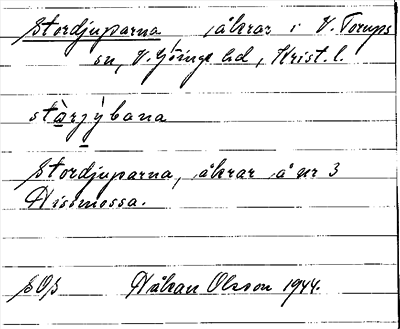 Stordjuparna, åkrar i V. Torups
sn, V. Göinge hd, Krist. l.
stàrjỳbana
Stordjuparna, åkrar å nr 3
Nissmossa.
SOB Håkan Olsson 1944.